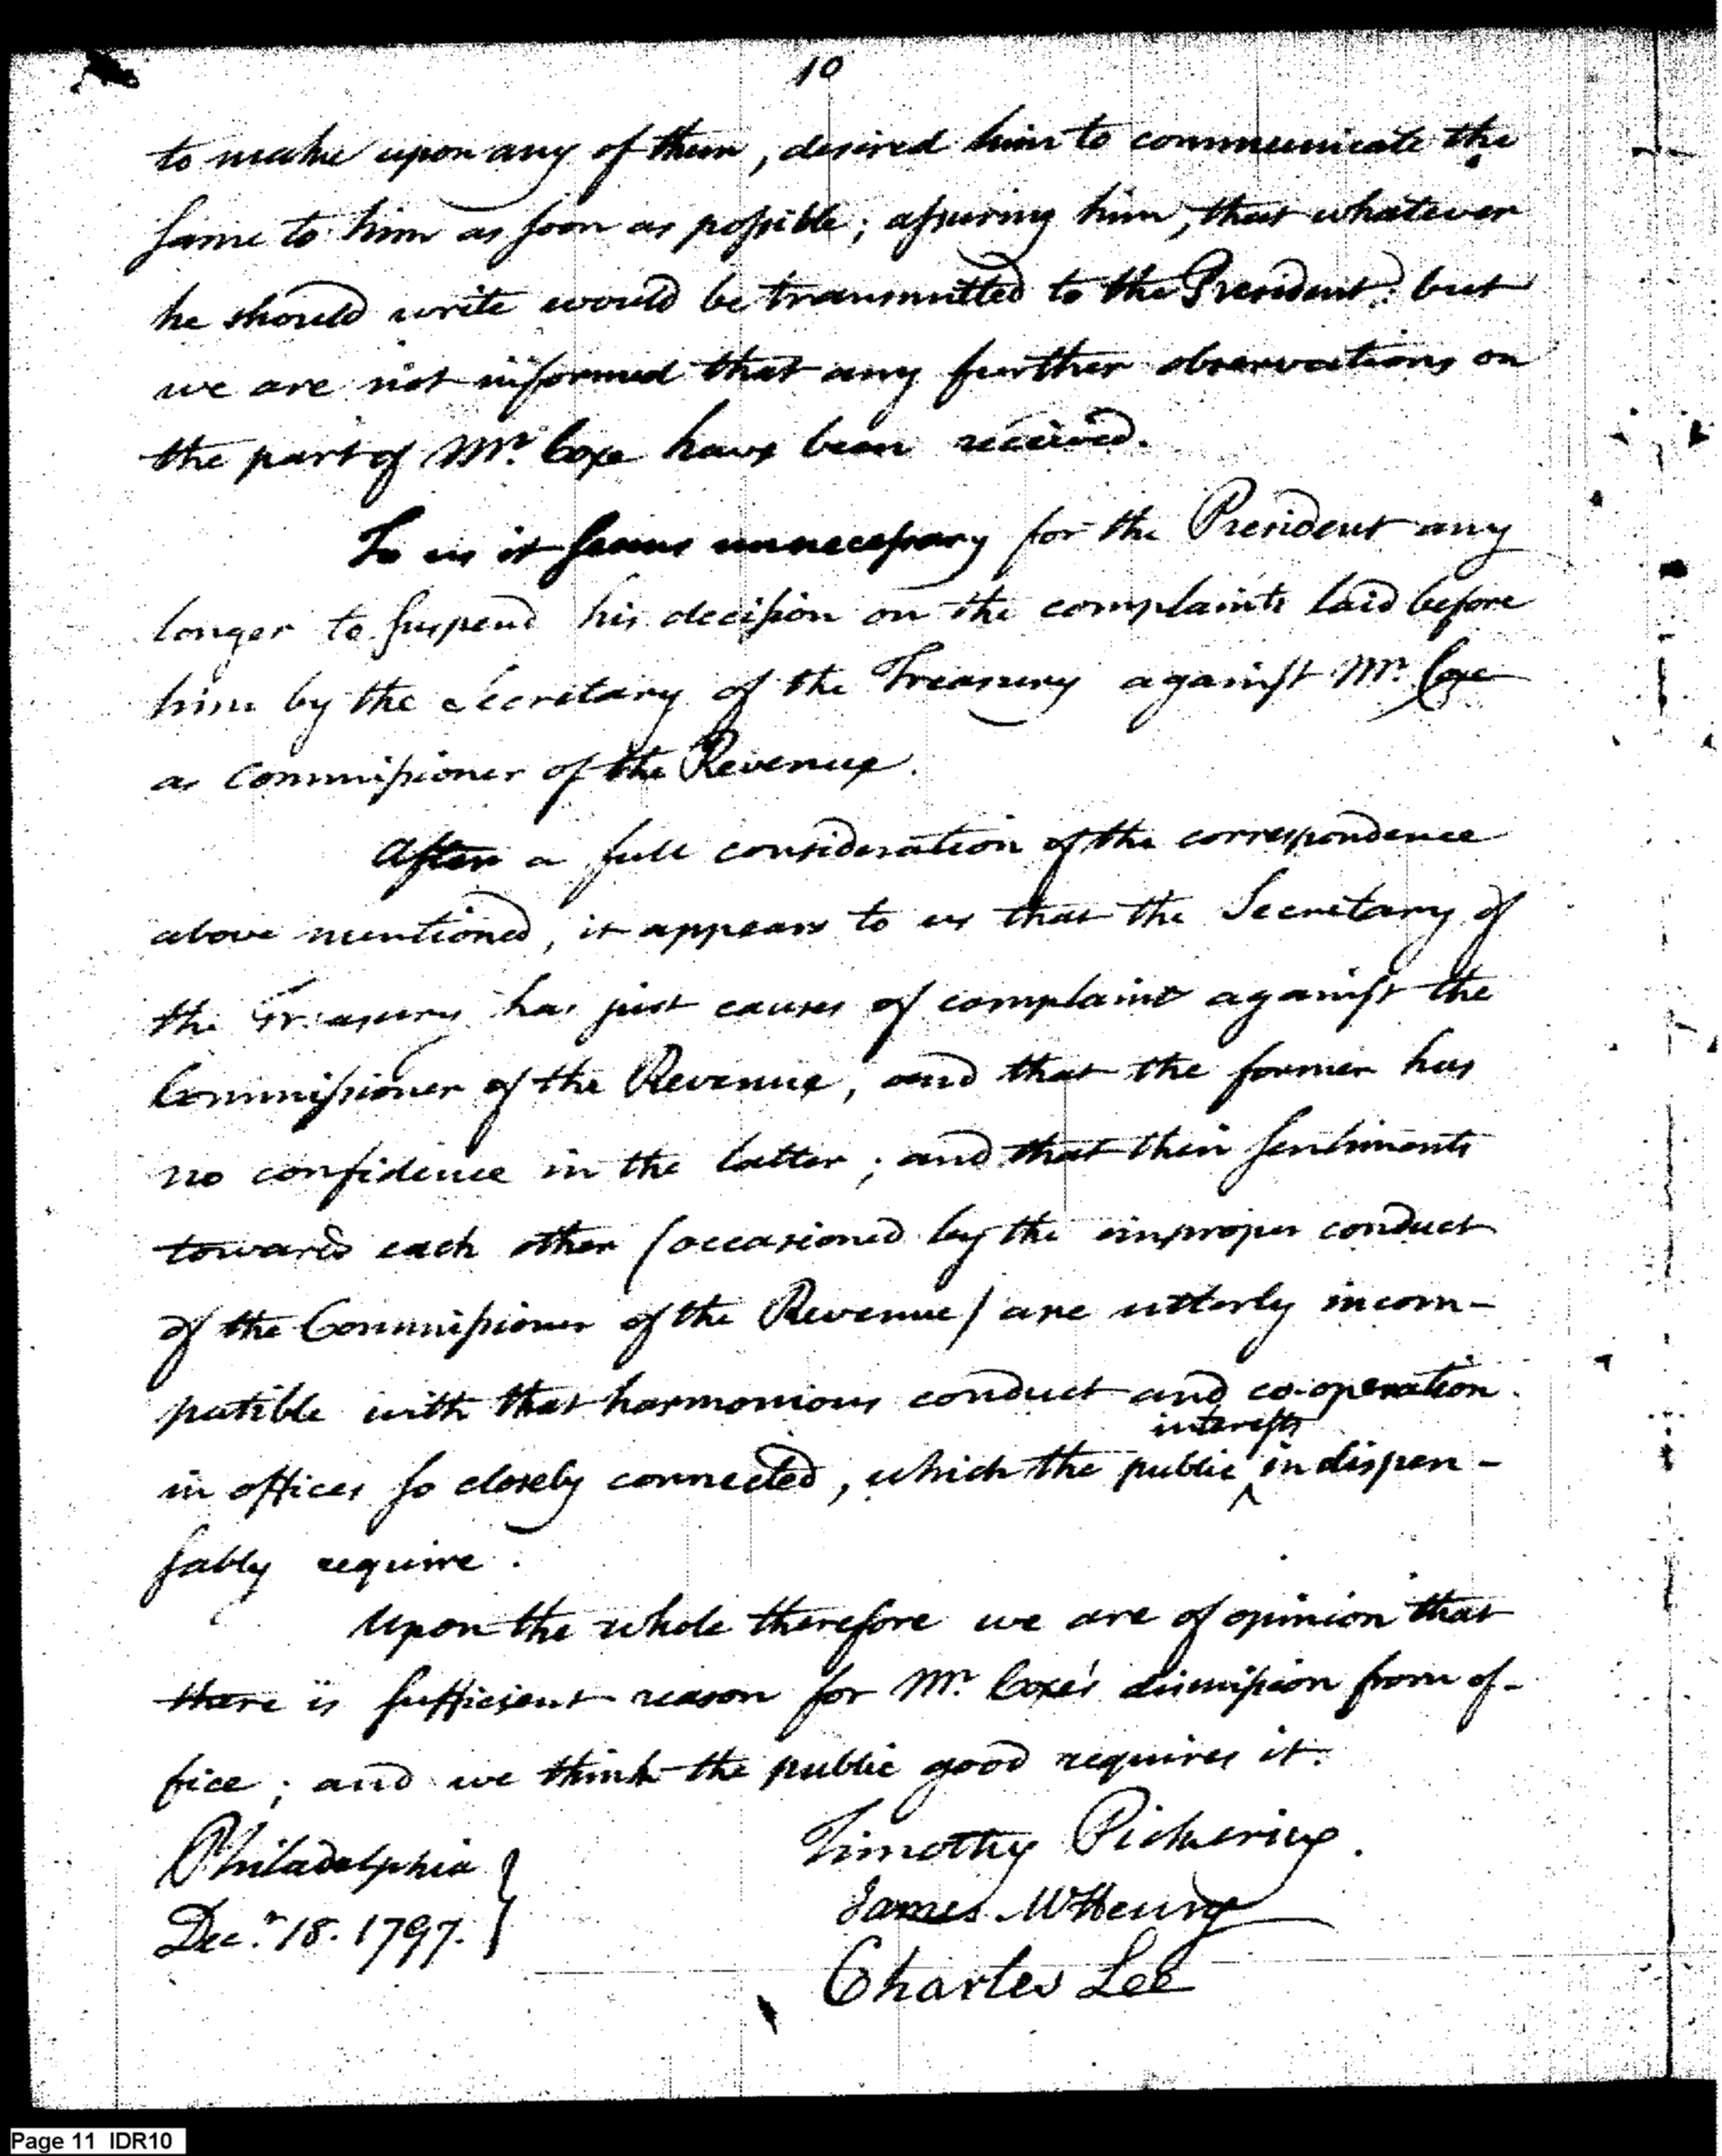 10
to make upon any of them, desired him to communicate the
same to him as soon as possible; assuring him, that whatever
he should write would be transmitted to the President: but
we are not informed that any further observations on
the part of Mr. Coxe have been received.
To us it seems unnecessary for the President any
longer to suspend his decision on the complaints laid before
him by the Secretary of the Treasury against Mr. Coxe
as Commissioner of the Revenue.
After a full consideration of the correspondence
above mentioned, it appears to us that the Secretary of
the Treasury has just causes of complaint against the
Commissioner of the Revenue, and that the former has
no confidence in the latter; and that their sentiments
towards each other (occasioned by the improper conduct
of the Commissioner of the Revenue) are utterly incom-
patible with that harmonious conduct and co-operation
interests
in offices so closely connected, which the public ^ indispen-
sably require.
Upon the whole therefore we are of opinion that
there is sufficient reason for Mr. Coxe's dismission from of-
fice; and we think the public good requires it.
Philadelphia
Decr. 18. 1797.
Timothy Pickering.
James McHenry
Charles Lee
Page 11 IDR10